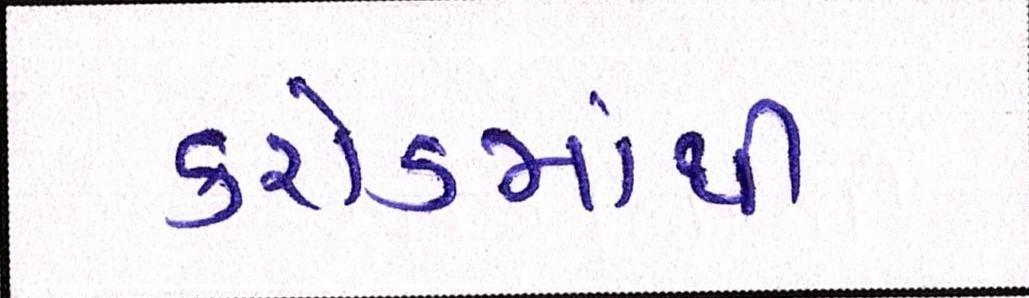 કરોડમાંથી